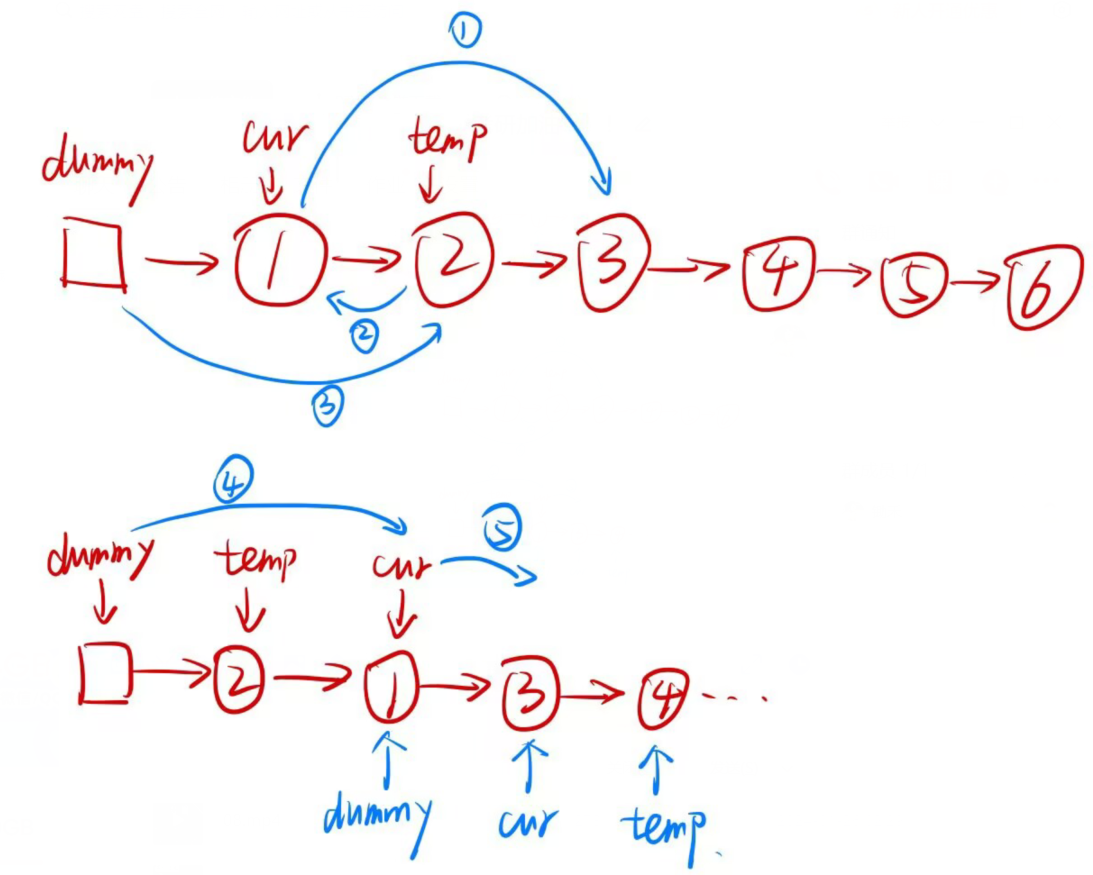 ①
cur temp
dummy
1 2 3 4 5 6
②
③
④
⑤
dummy temp cur
2 1 3 4 ....
dummy cur temp.